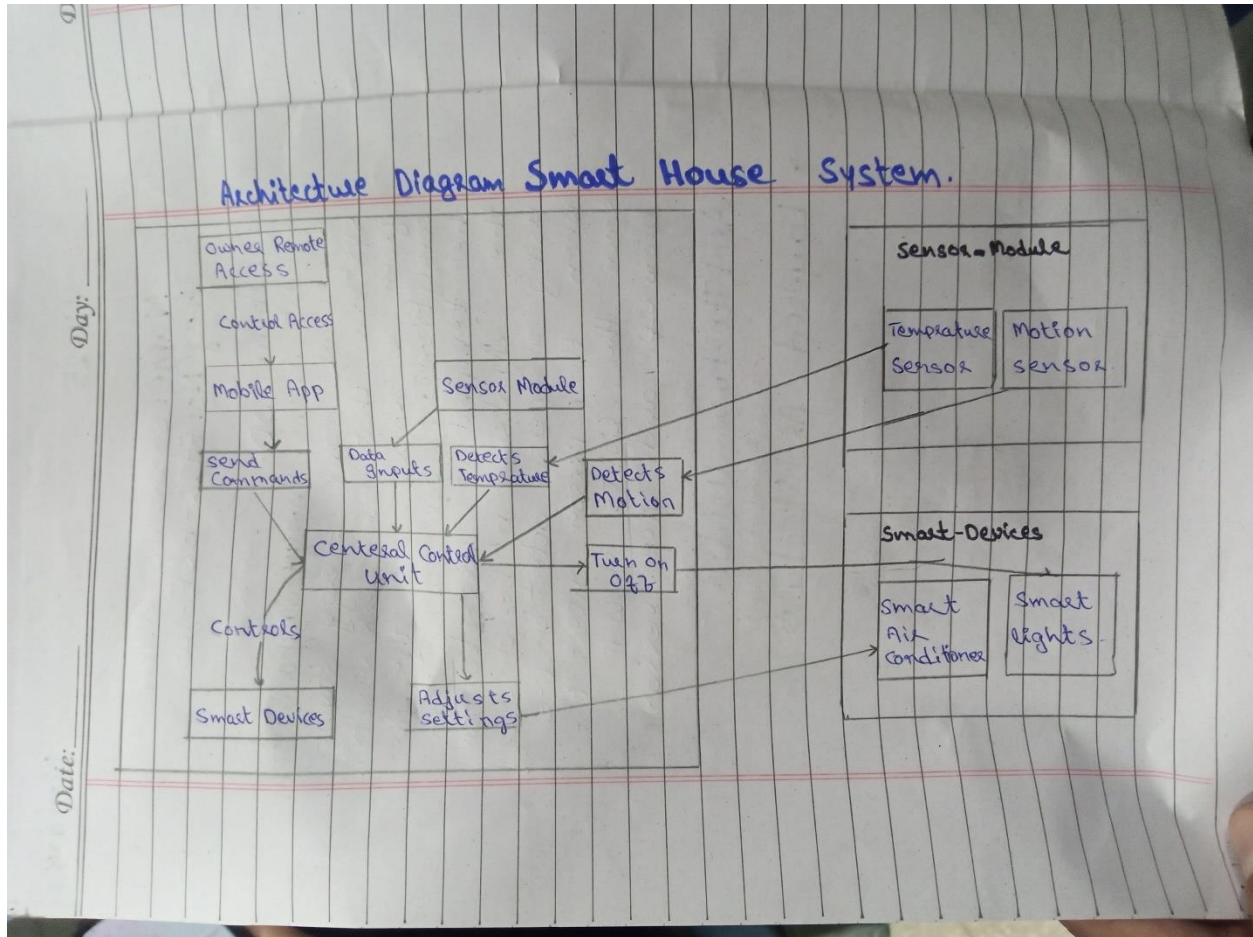 Architecture Diagram Smart House System.
Owner Remote
Access
Control Access
Mobile App
Send
Commands
Sensor Module
Data
Inputs
Detects
Temprature
Detects
Motion
Centeral Control
Unit
Turn on
Off
Controls
Smart Devices
Adjusts
settings
Sensor-Module
Temprature
Sensor
Motion
sensor
Smart-Devices
Smart
Air
Conditioner
Smart
lights
Day:
Date: